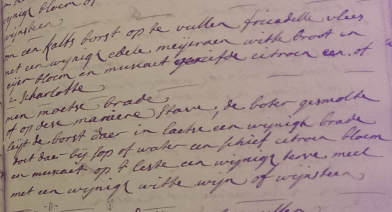 wijnigh bloem o
wijnsteen
om een kalfs borst op te vullen fricadelle vlees
met een wijnigh edele meijeraen witte broot in
eijer bloem en muscaet geriefde citroen en of
scharlotte
men moetse brade
of op dese maniere stave, de boter gesmolte
leijt de borst daer in laetse een wijnigh brade
doet daer bij sop of water een schief citroen bloem
en muscaet op 't leste een wijnigh terwe meel
met een wijnigh witte wijn of wijnsteen